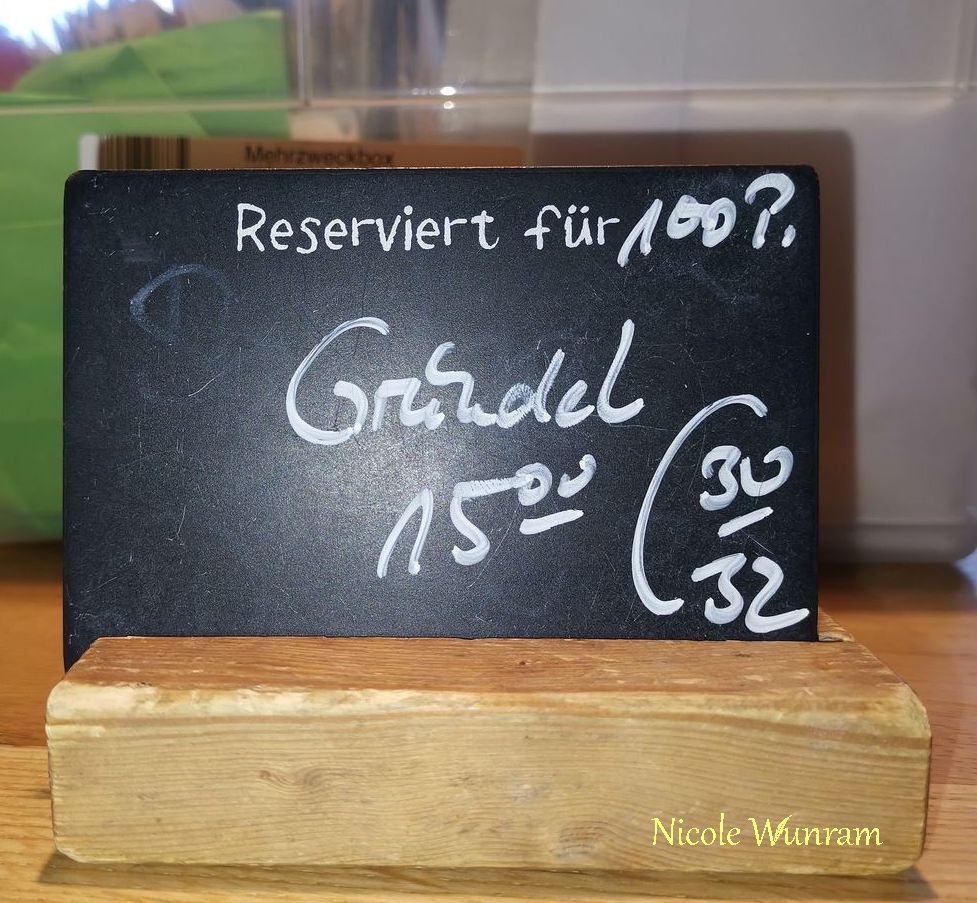 Mehrzweckbox
Reserviert für 100 P.
Gründel
15 00
30
-
32
Nicole Wunram